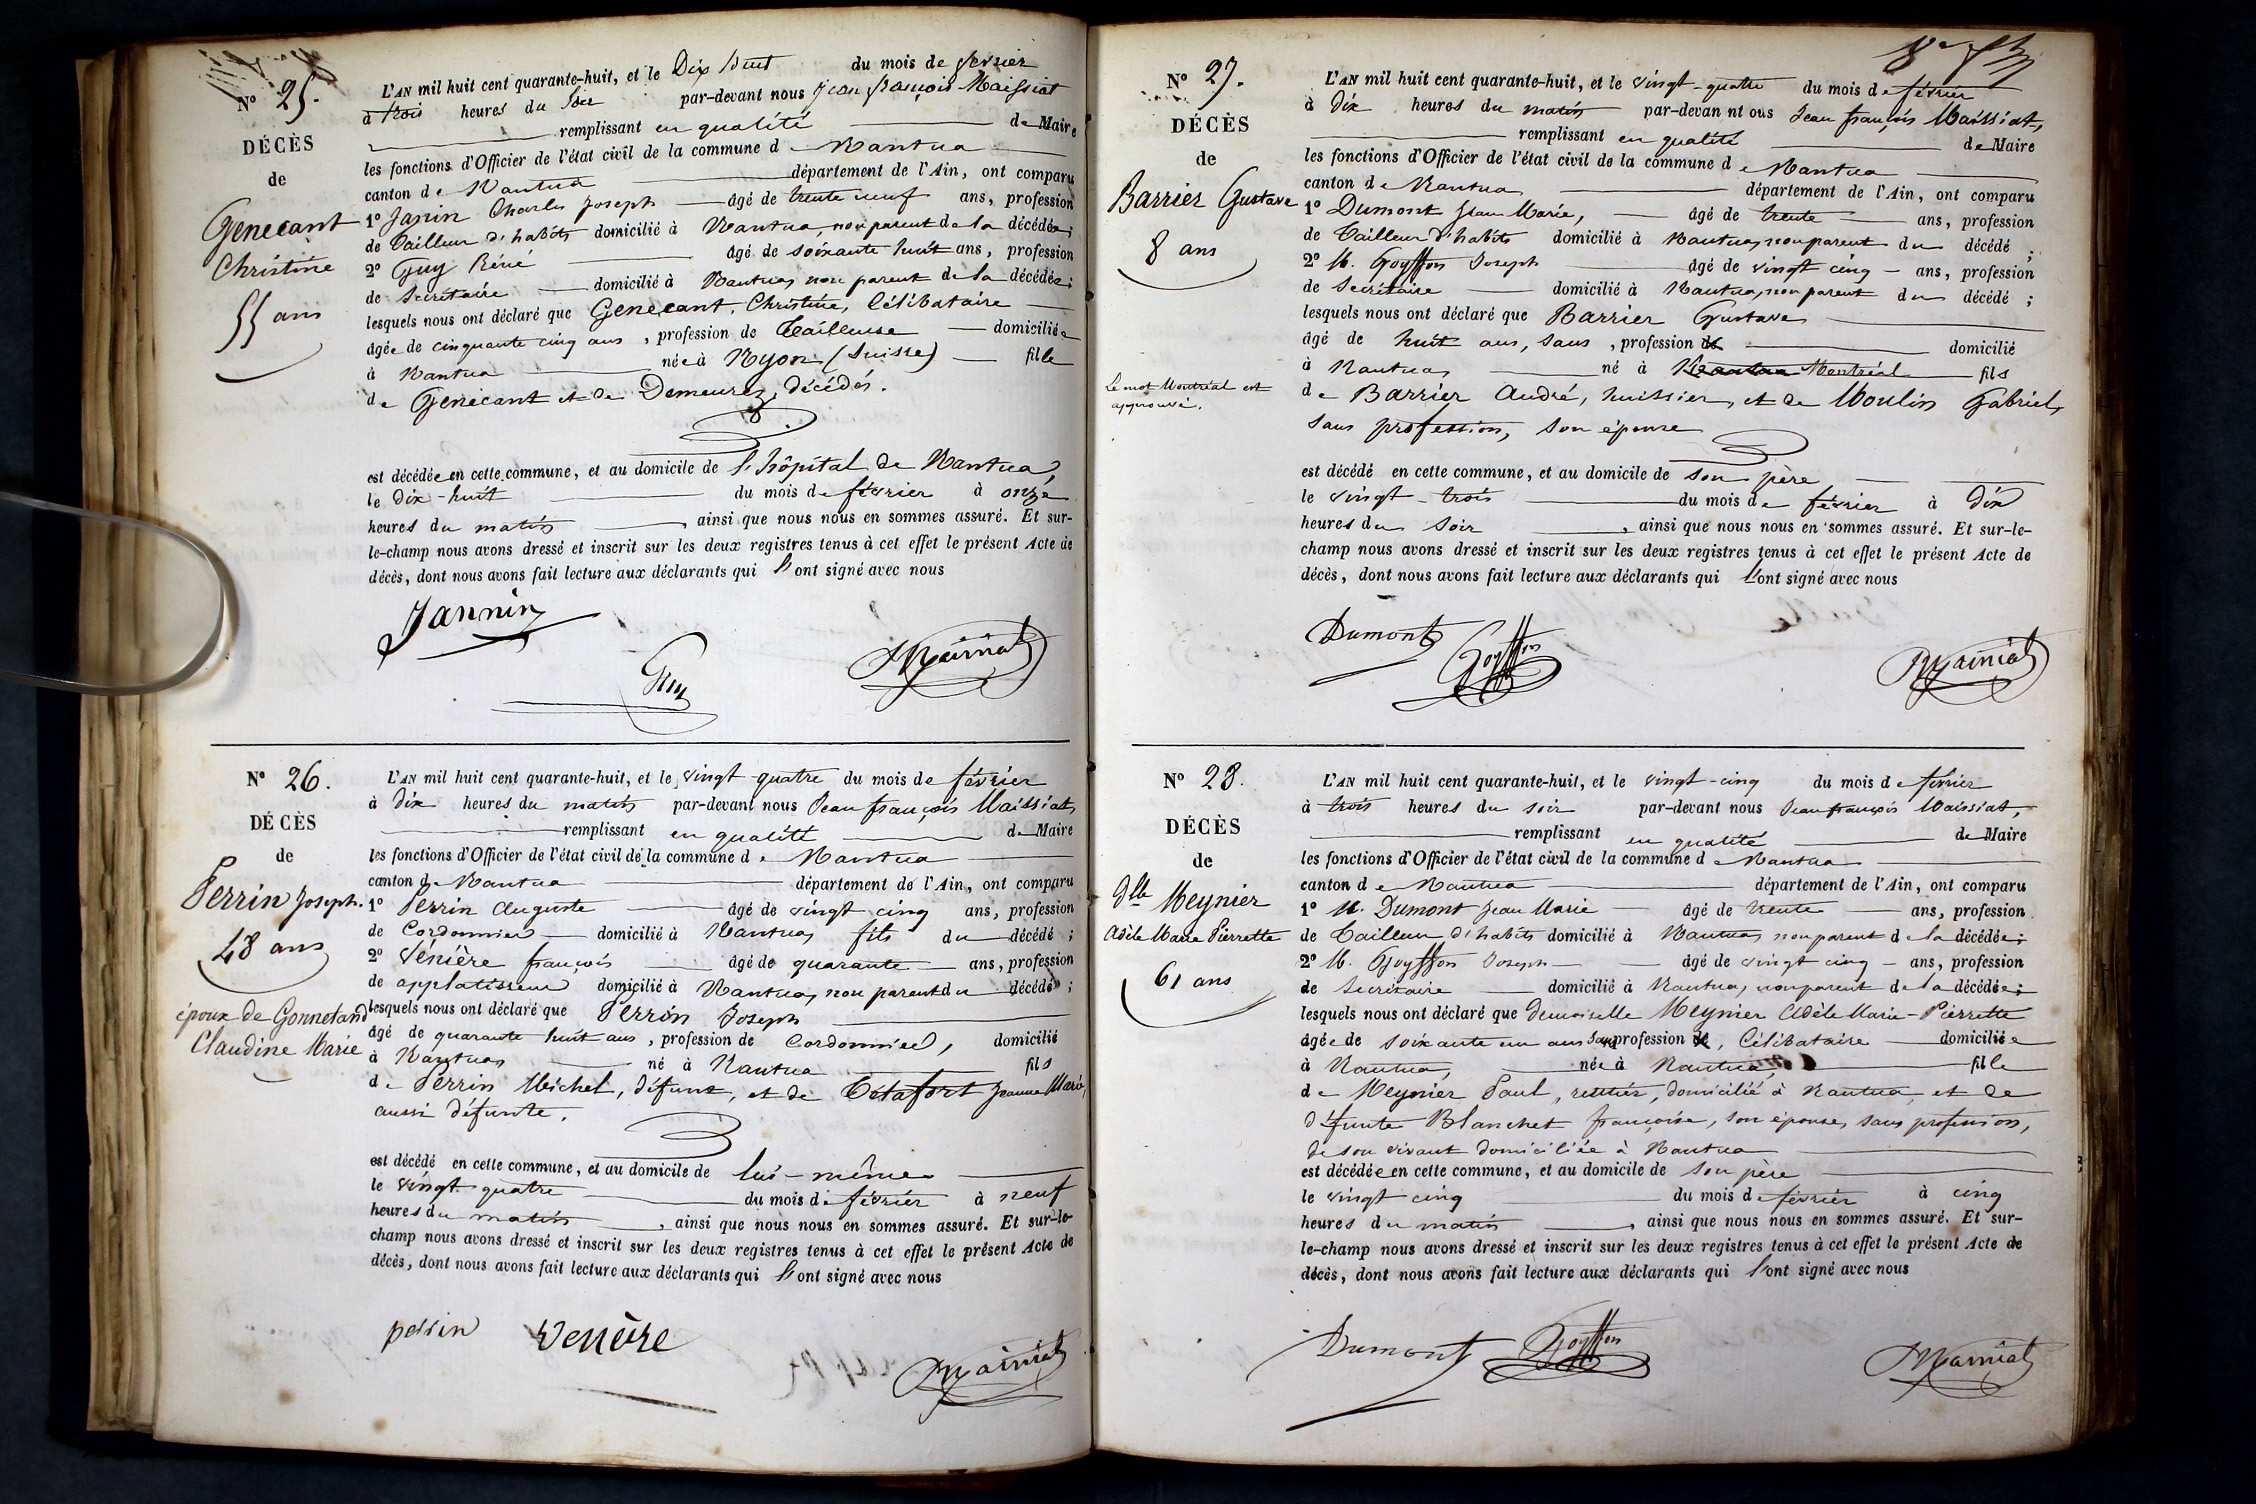 Nº 25.
DÉCÈS
de
Genecant
Christine
55 ans
L'AN mil huit cent quarante-huit, et le Dix huit du mois de février
à trois heures du soir par-devant nous Jean françois Maissiat
remplissant en qualité de Maire
les fonctions d'Officier de l'état civil de la commune de Nantua
canton de Nantua département de l'Ain, ont comparu
1º Janin Charles Joseph âgé de trente neuf ans, profession
de Tailleur d'habits domicilié à Nantua, non parent de la décédée;
2º Guy Réné âgé de soixante huit ans, profession
de Secrétaire domicilié à Nantua, non parent de la décédée;
lesquels nous ont déclaré que Genecant, Christine, Célibataire
âgée de cinquante cinq ans, profession de Tailleuse domiciliée
à Nantua née à Nyon (Suisse) fille
de Genecant et de Demeurez, décédés.
est décédée en cette commune, et au domicile de l'hôpital de Nantua,
le dix-huit du mois de février à onze
heures du matin, ainsi que nous nous en sommes assuré. Et sur-
le-champ nous avons dressé et inscrit sur les deux registres tenus à cet effet le présent Acte de
décès, dont nous avons fait lecture aux déclarants qui l'ont signé avec nous
Jannin
Guy
Maissiat
Nº 26.
DÉCÈS
de
Perrin Joseph.
48 ans
époux de Gonnetand
Claudine Marie
L'AN mil huit cent quarante-huit, et le vingt-quatre du mois de février
à dix heures du matin par-devant nous Jean françois Maissiat,
remplissant en qualité de Maire
les fonctions d'Officier de l'état civil de la commune de Nantua
canton de Nantua département de l'Ain, ont comparu
1º Perrin Auguste âgé de vingt cinq ans, profession
de Cordonnier domicilié à Nantua, fils du décédé;
2º Vénière françois âgé de quarante ans, profession
de applatisseur domicilié à Nantua, non parent du décédé;
lesquels nous ont déclaré que Perrin Joseph
âgé de quarante huit ans, profession de Cordonnier, domicilié
à Nantua, né à Nantua fils
de Perrin Michel, défunt, et de Tétafort Jeanne Marie,
aussi défunte.
est décédé en cette commune, et au domicile de lui-même
le vingt quatre du mois de février à neuf
heures du matin, ainsi que nous nous en sommes assuré. Et sur-le-
champ nous avons dressé et inscrit sur les deux registres tenus à cet effet le présent Acte de
décès, dont nous avons fait lecture aux déclarants qui l'ont signé avec nous
perrin Venière
Maissiat
Nº 27.
DÉCÈS
de
Barrier Gustave
8 ans
Le mot Montréal est
approuvé.
L'AN mil huit cent quarante-huit, et le vingt-quatre du mois de février
à dix heures du matin par-devan nt ous Jean françois Maissiat,
remplissant en qualité de Maire
les fonctions d'Officier de l'état civil de la commune de Nantua
canton de Nantua département de l'Ain, ont comparu
1º Dumont Jean Marie, âgé de trente ans, profession
de Tailleur d'habits domicilié à Nantua, non parent du décédé;
2º M. Goyffon Joseph âgé de vingt cinq ans, profession
de Secrétaire domicilié à Nantua, non parent du décédé;
lesquels nous ont déclaré que Barrier Gustave
âgé de huit ans, sans, profession de domicilié
à Nantua, né à Nantua Montréal fils
de Barrier André, huissier, et de Moulin Gabriel,
sans profession, son épouse
est décédé en cette commune, et au domicile de son père
le vingt-trois du mois de février à dix
heures du soir, ainsi que nous nous en sommes assuré. Et sur-le-
champ nous avons dressé et inscrit sur les deux registres tenus à cet effet le présent Acte de
décès, dont nous avons fait lecture aux déclarants qui l'ont signé avec nous
Dumont Goyffon
Maissiat
Nº 28.
DÉCÈS
de
Dlle Meynier
Adèle Marie Pierrette
61 ans
L'AN mil huit cent quarante-huit, et le vingt-cinq du mois de février
à trois heures du soir par-devant nous Jean françois Maissiat,
remplissant en qualité de Maire
les fonctions d'Officier de l'état civil de la commune de Nantua
canton de Nantua département de l'Ain, ont comparu
1º M. Dumont Jean Marie âgé de trente ans, profession
de Tailleur d'habits domicilié à Nantua, non parent de la décédée;
2º M. Goyffon Joseph âgé de vingt cinq ans, profession
de Secrétaire domicilié à Nantua, non parent de la décédée;
lesquels nous ont déclaré que Demoiselle Meynier Adèle Marie-Pierrette
âgée de soixante un ans sans profession de, Célibataire domiciliée
à Nantua, née à Nantua, fille
de Meynier Paul, rentier, domicilié à Nantua, et de
défunte Blanchet françoise, son épouse, sans profession,
de son vivant domiciliée à Nantua
est décédée en cette commune, et au domicile de son père
le vingt cinq du mois de février à cinq
heures du matin, ainsi que nous nous en sommes assuré. Et sur-
le-champ nous avons dressé et inscrit sur les deux registres tenus à cet effet le présent Acte de
décès, dont nous avons fait lecture aux déclarants qui l'ont signé avec nous
Dumont Goyffon
Maissiat